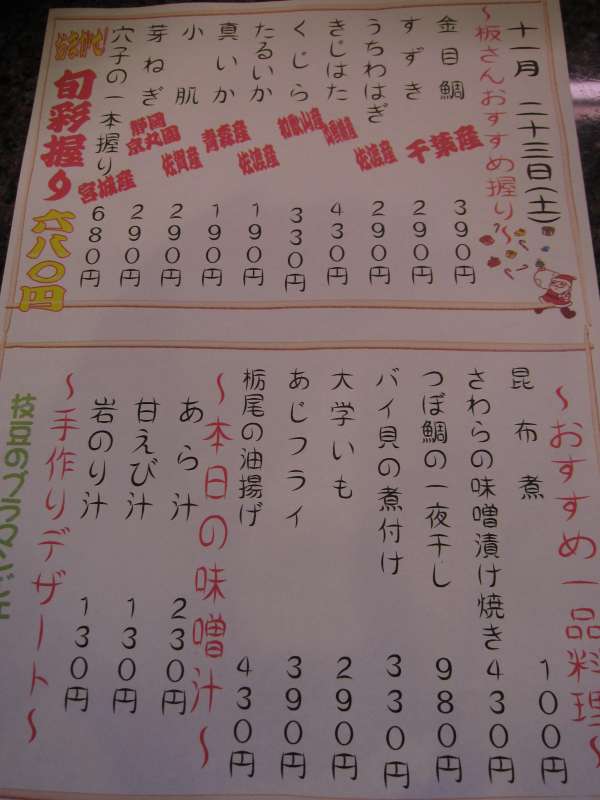 十一月 二十三日(土)
〜板さんおすすめ握り〜
金目鯛 390円
すずき 千葉産 290円
うちわはぎ 佐渡産 290円
きじはた 430円
くじら 和歌山産 330円
たるいか 佐渡産 190円
真いか 青森産 190円
小肌 佐賀産 290円
芽ねぎ 静岡京丸園 290円
穴子の一本握り 宮城産 680円
おまかせ!
旬彩握り 六八〇円
〜おすすめ一品料理〜
昆布煮 100円
さわらの味噌漬け焼き 430円
つぼ鯛の一夜干し 980円
バイ貝の煮付け 330円
大学いも 290円
あじフライ 390円
栃尾の油揚げ 430円
〜本日の味噌汁〜
あら汁 230円
甘えび汁 130円
岩のり汁 130円
〜手作りデザート〜
枝豆のブラマンジェ